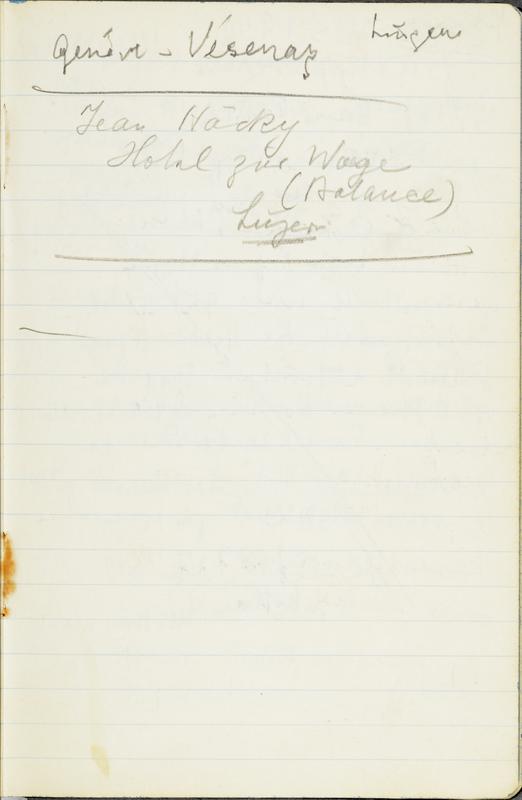 Genève - Vésenaz
Jean Häcky
Hotel zur Wage
(Balance)
Luzern